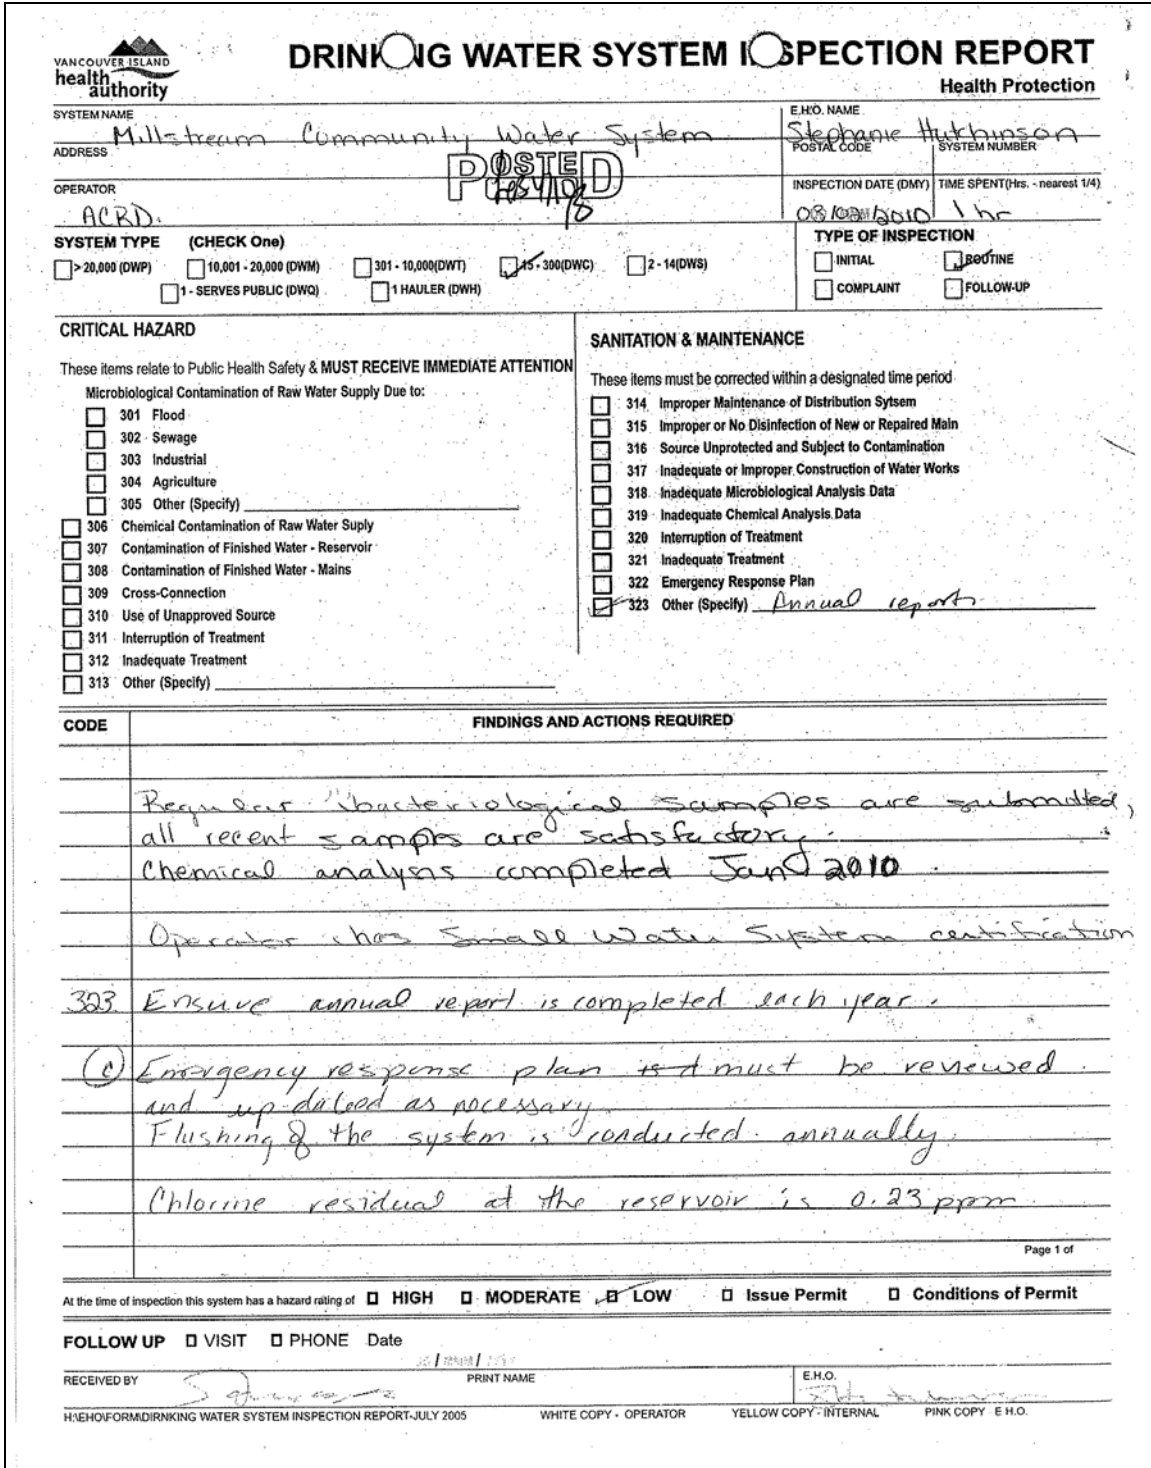 VANCOUVER ISLAND
health
authority
DRINKING WATER SYSTEM INSPECTION REPORT
Health Protection
SYSTEM NAME
Millstream Community Water System
E.H.O. NAME
Stephanie Hutchinson
ADDRESS
POSTAL CODE
SYSTEM NUMBER
POSTED
OPERATOR
ACRD.
INSPECTION DATE (DMY)
TIME SPENT(Hrs. - nearest 1/4)
08/02/2010
1 hr
SYSTEM TYPE (CHECK One)
> 20,000 (DWP) 10,001 - 20,000 (DWM) 301 - 10,000(DWT) 15 - 300(DWC) 2 - 14(DWS)
1 - SERVES PUBLIC (DWQ) 1 HAULER (DWH)
TYPE OF INSPECTION
INITIAL ROUTINE
COMPLAINT FOLLOW-UP
CRITICAL HAZARD
These items relate to Public Health Safety & MUST RECEIVE IMMEDIATE ATTENTION
Microbiological Contamination of Raw Water Supply Due to:
301 Flood
302 Sewage
303 Industrial
304 Agriculture
305 Other (Specify)
306 Chemical Contamination of Raw Water Suply
307 Contamination of Finished Water - Reservoir
308 Contamination of Finished Water - Mains
309 Cross-Connection
310 Use of Unapproved Source
311 Interruption of Treatment
312 Inadequate Treatment
313 Other (Specify)
SANITATION & MAINTENANCE
These items must be corrected within a designated time period
314 Improper Maintenance of Distribution Sytsem
315 Improper or No Disinfection of New or Repaired Main
316 Source Unprotected and Subject to Contamination
317 Inadequate or Improper Construction of Water Works
318 Inadequate Microbiological Analysis Data
319 Inadequate Chemical Analysis Data
320 Interruption of Treatment
321 Inadequate Treatment
322 Emergency Response Plan
323 Other (Specify) Annual report
CODE
FINDINGS AND ACTIONS REQUIRED
Regular bacteriological samples are submitted,
all recent samples are satisfactory.
Chemical analysis completed Jan 2010
Operator has Small Water System certification
323. Ensure annual report is completed each year.
(C) Emergency response plan must be reviewed
and up-dated as necessary.
Flushing of the system is conducted annually.
Chlorine residual at the reservoir is 0.23 ppm
Page 1 of
At the time of inspection this system has a hazard rating of HIGH MODERATE LOW Issue Permit Conditions of Permit
FOLLOW UP VISIT PHONE Date
RECEIVED BY
PRINT NAME
E.H.O.
H:\EHO\FORM\DIRNKING WATER SYSTEM INSPECTION REPORT-JULY 2005
WHITE COPY - OPERATOR
YELLOW COPY - INTERNAL
PINK COPY - E H.O.